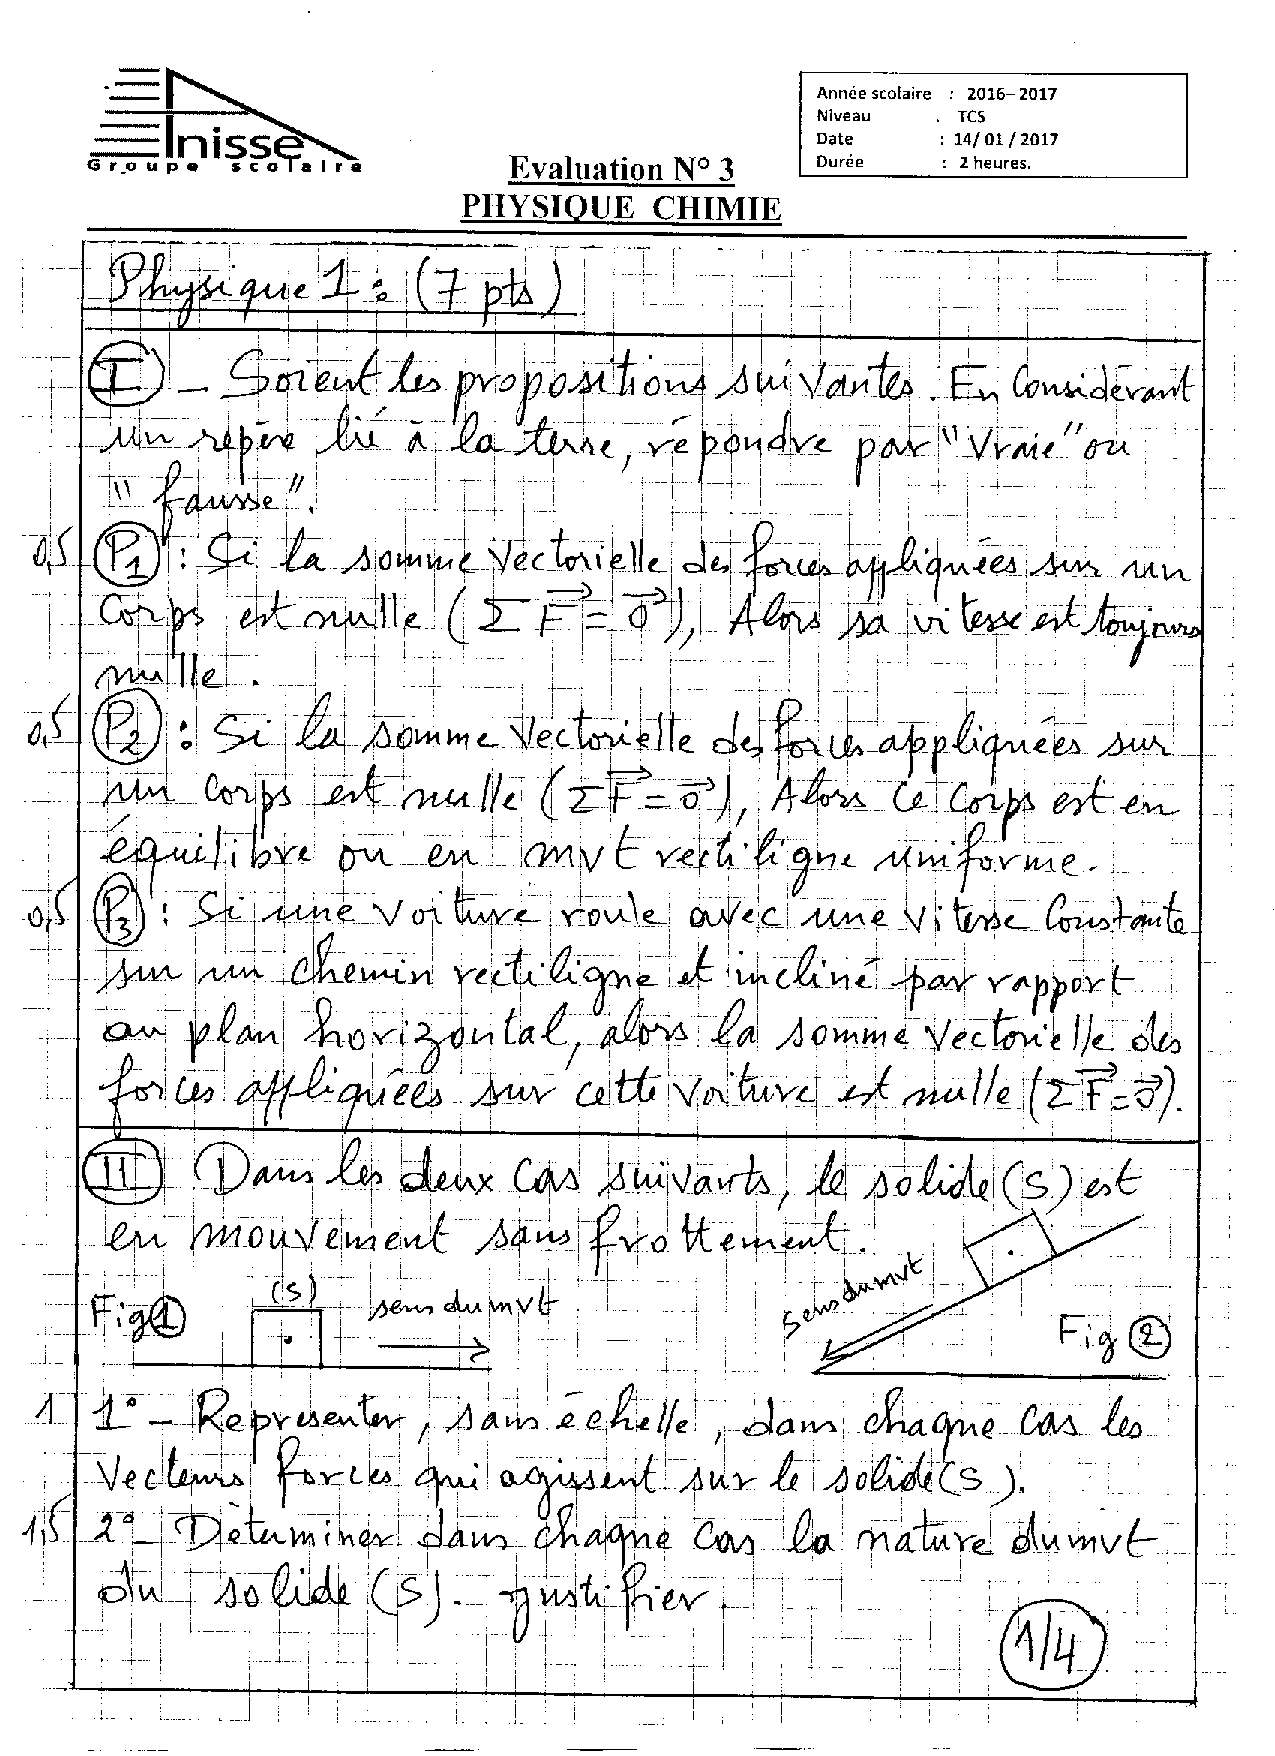 Anisse
Groupe scolaire
Année scolaire : 2016-2017
Niveau . TCS
Date : 14/ 01 / 2017
Durée : 2 heures.
Evaluation N° 3
PHYSIQUE CHIMIE
Physique 1 : (7 pts)
I - Soient les propositions suivantes. En Considérant
un repère lié à la terre, répondre par "Vraie" ou
"fausse".
0,5 P1 : Si la somme Vectorielle des forces appliquées sur un
Corps est nulle (ΣF⃗ = 0⃗), Alors sa vitesse est toujours
nulle.
0,5 P2 : Si la somme Vectorielle des forces appliquées sur
un Corps est nulle (ΣF⃗ = 0⃗), Alors Ce Corps est en
équilibre ou en mvt rectiligne uniforme.
0,5 P3 : Si une Voiture roule avec une Vitesse Constante
sur un chemin rectiligne et incliné par rapport
au plan horizontal, alors la somme Vectorielle des
forces appliquées sur cette Voiture est nulle (ΣF⃗ = 0⃗).
II Dans les deux Cas suivants, le solide (S) est
en mouvement sans frottement.
Fig 1 (S) sens du mvt
sens du mvt Fig 2
1 1° - Representer, sans échelle, dans chaque Cas les
Vecteurs forces qui agissent sur le solide (S).
1,5 2° - Déterminer dans chaque Cas la nature du mvt
du solide (S). - justifier
1/4